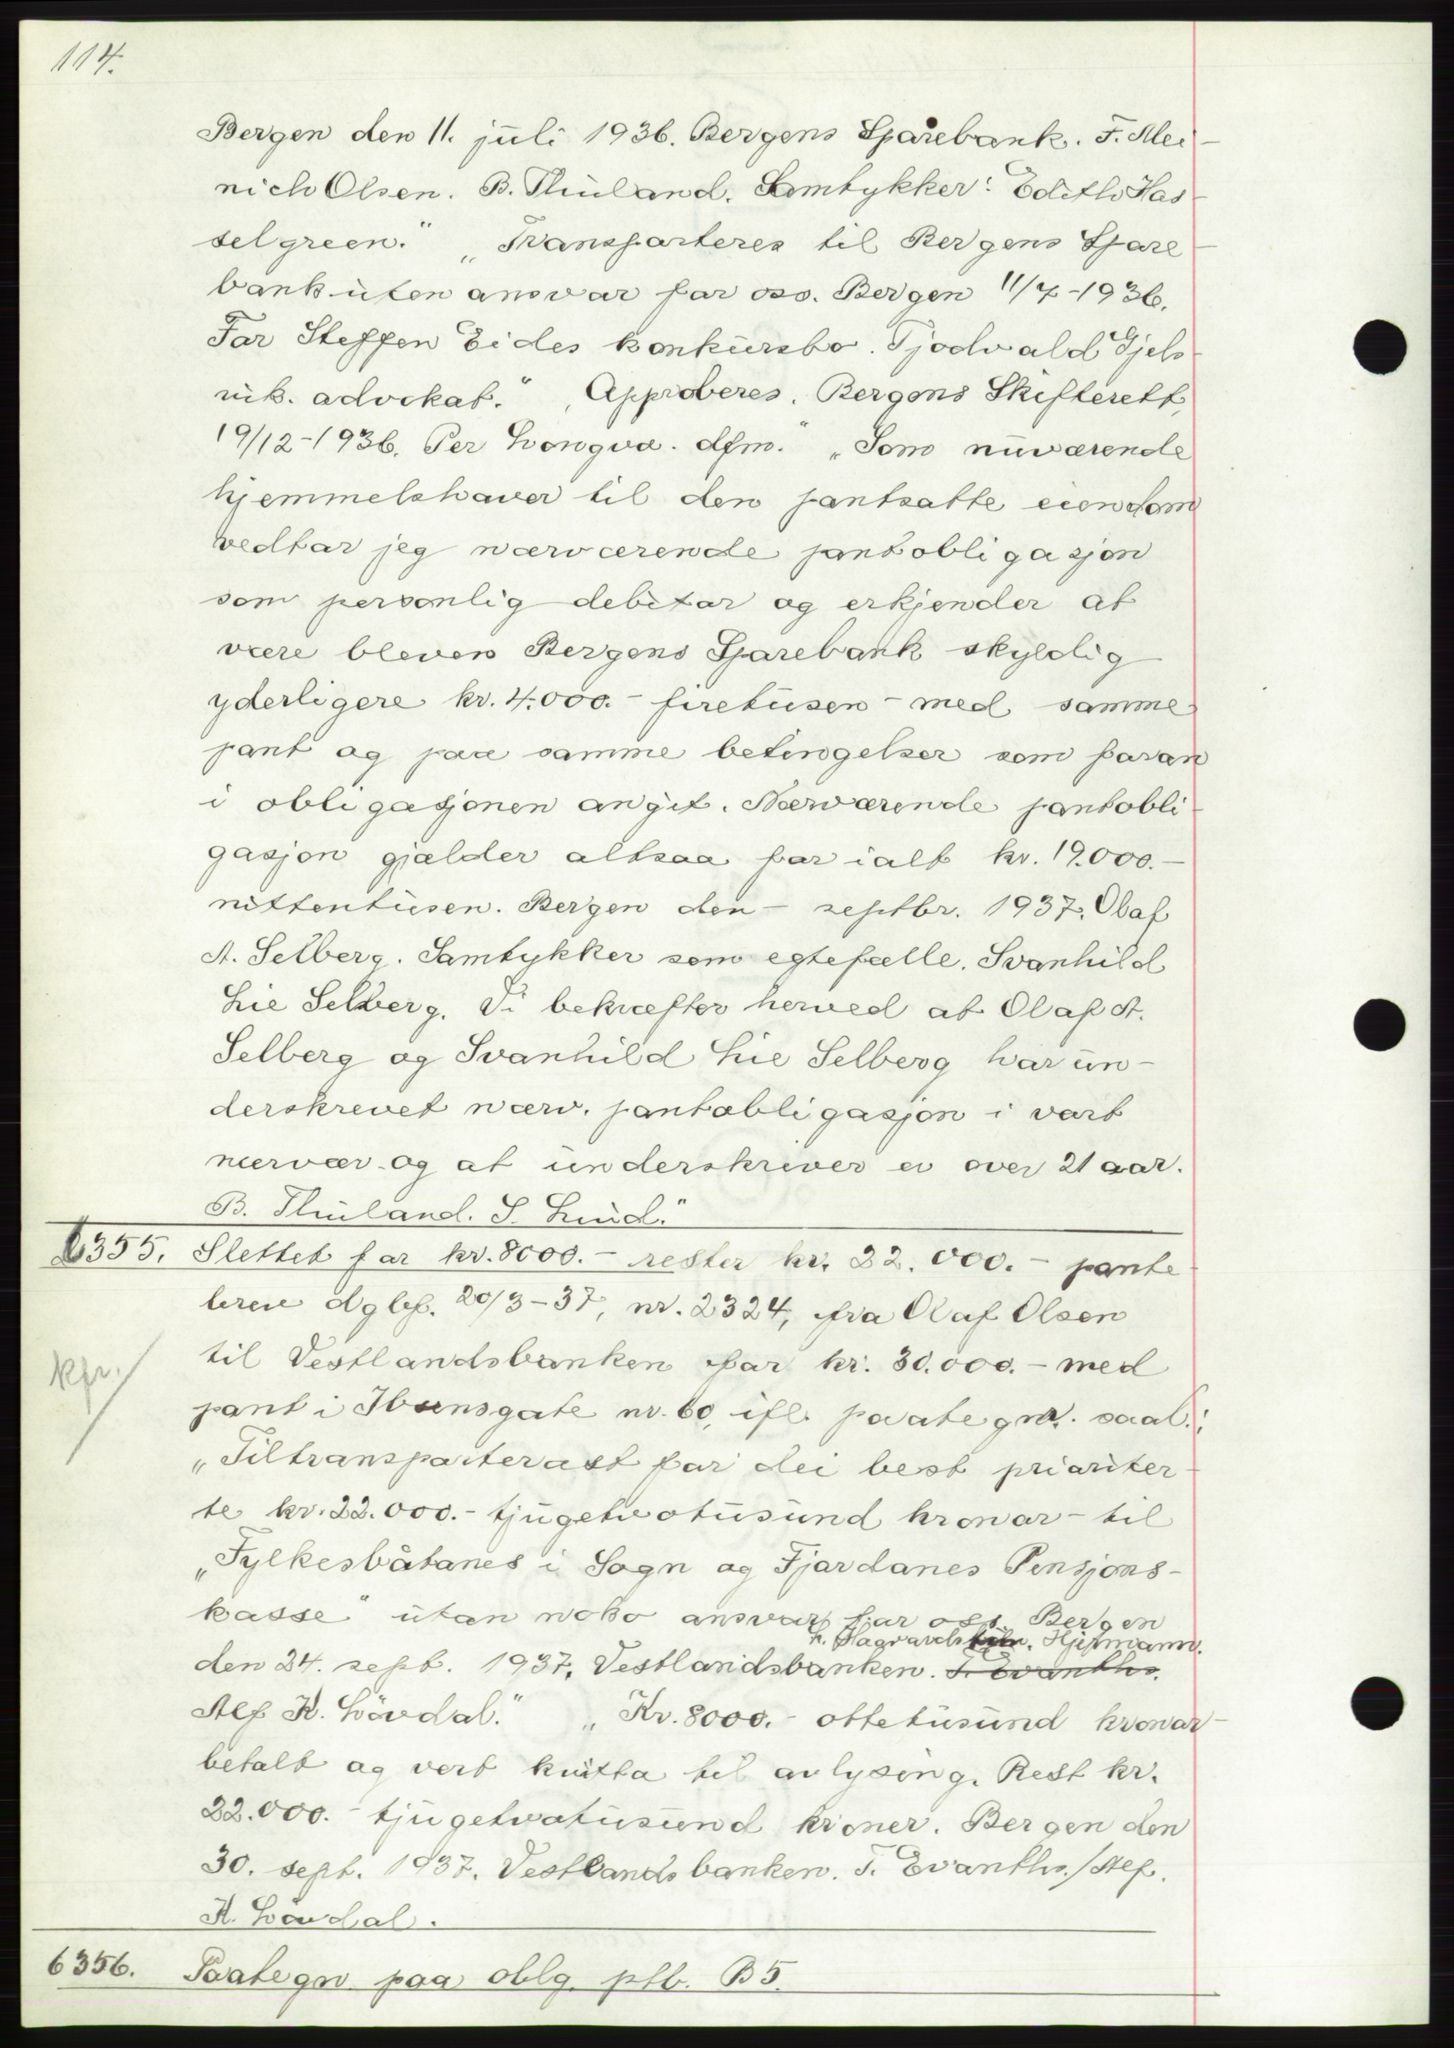 114.
Bergen den 11. juli 1936. Bergens Sparebank. F. Mei-
nich Olsen. B. Thuland. Samtykker: Edith Has-
selgreen." „Transporteres til Bergens Spare-
bank uten ansvar for oss. Bergen 11/7-1936.
For Steffen Eides konkursbo. Tjodvald Gjels-
vik. advokat." „Approberes. Bergens Skifterett,
19/12-1936. Per Longva. dfm." „Som nuværende
hjemmelshaver til den pantsatte eiendom
vedtar jeg nærværende pantobligasjon
som personlig debitor og erkjender at
være bleven Bergens Sparebank skyldig
yderligere kr. 4.000.- firetusen - med samme
pant og paa samme betingelser som foran
i obligasjonen angit. Nærværende pantobli-
gasjon gjælder altsaa for ialt kr. 19.000.-
nittentusen. Bergen den - septbr. 1937. Olaf
A. Selberg. Samtykker som egtefælle. Svanhild
Lie Selberg. Vi bekræfter herved at Olaf A.
Selberg og Svanhild Lie Selberg har un-
derskrevet nærv. pantobligasjon i vort
nærvær og at underskriver er over 21 aar.
B. Thuland. S. Lund."
6355. Slettet for kr. 8000.- rester kr. 22.000.- pante
breve dgbf. 20/3-37, nr. 2324, fra Olaf Olsen
til Vestlandsbanken for kr. 30.000.- med
kfr.
pant i Ibsensgate nr. 60, ifl. paategn. saal.:
„Tiltransporterast for dei best prioriter-
te kr. 22.000.- tjugetvotusund kronor - til
„Fylkesbåtanes i Sogn og Fjordanes Pensjons-
kasse" utan noko ansvar for oss. Bergen
Hjermann.
den 24. sept. 1937. Vestlandsbanken. T. Evanths.
Alf K. Lövdal." „Kr. 8000.- ottetusund kronor-
betalt og vert kvitta til avlysing. Rest kr.
22.000.- tjugetvotusund kroner. Bergen den
30. sept. 1937. Vestlandsbanken. T. Evanths./Alf.
K. Lövdal.
6356. Paategn paa oblg. ptb. B5.